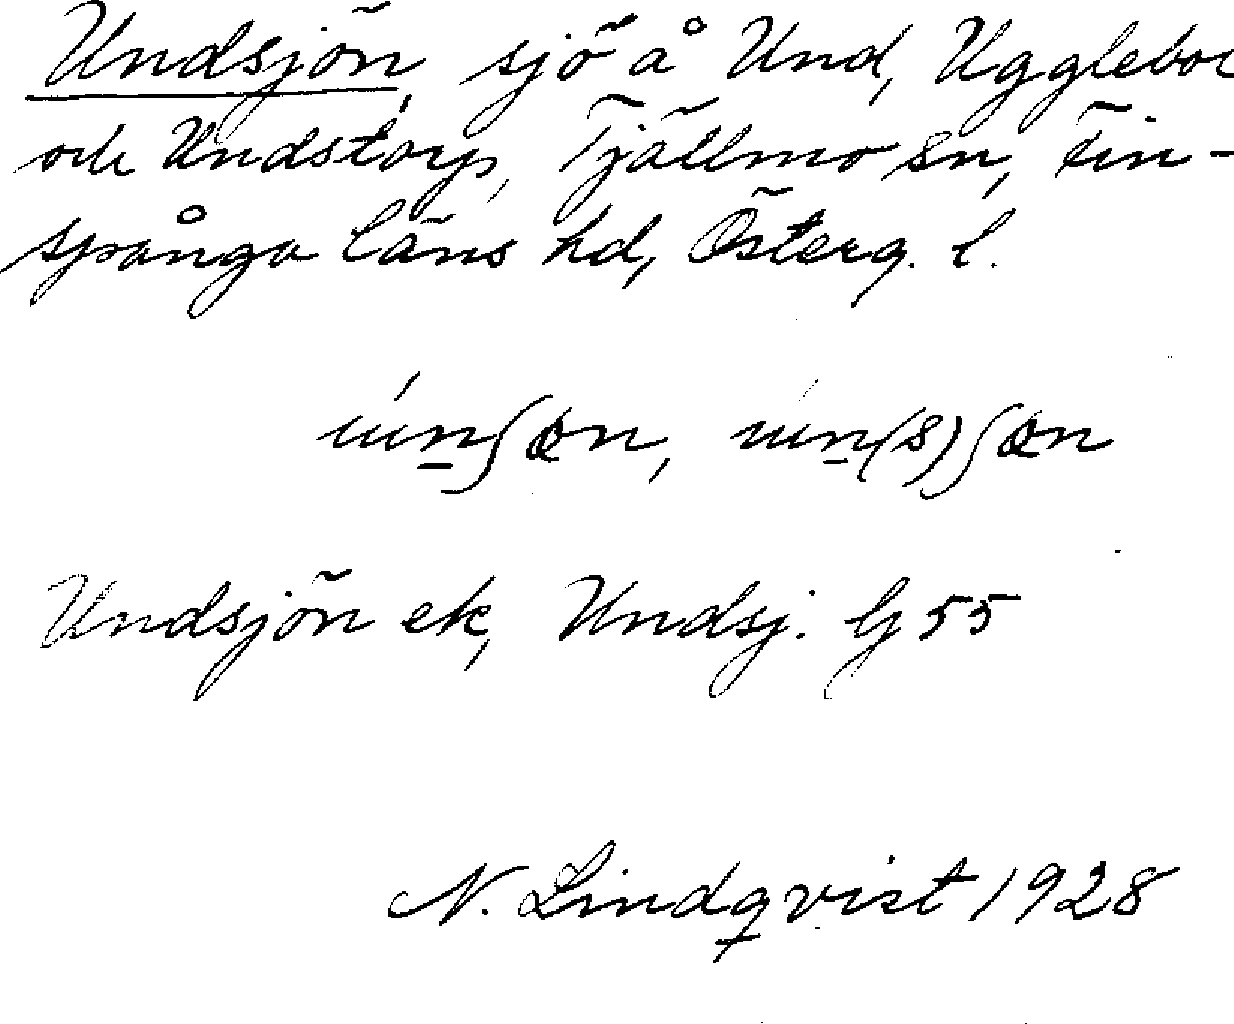 Undsjön, sjö å Und, Ugglebo
och Undstorp, Tjällmo sn, Fin-
spånga läns hd, Österg. l.
Undsjön ek, Undsj. G 55
N. Lindqvist 1928